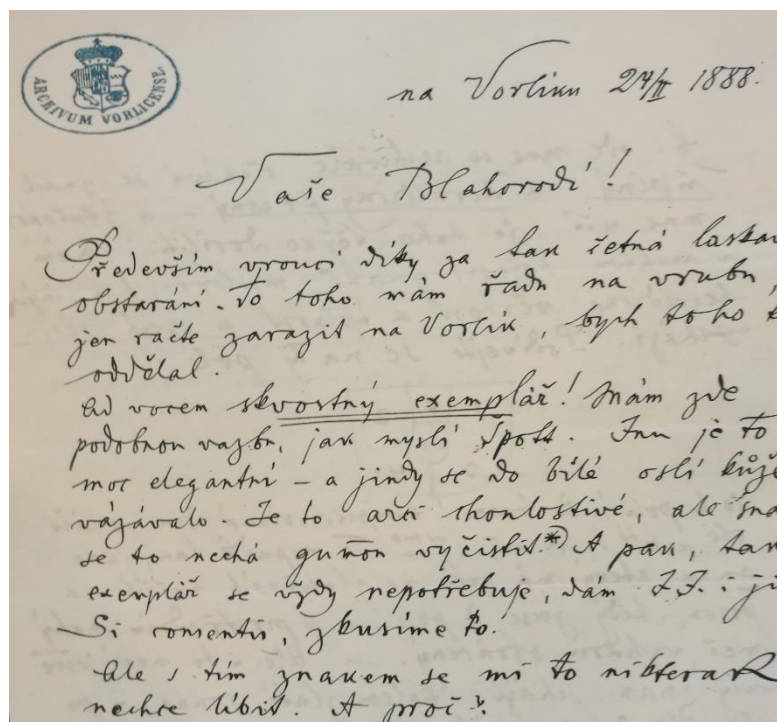 ARCHIVUM VORLICENSE
na Vorlíku 24/II 1888.
Vaše Blahorodí!
Především vroucí díky za tak četná laskav
obstarání. Do toho mám řadu na vrubu,
jen račte zarazit na Vorlík, bych toho
oddělal.
Ad vocem skvostný exemplář! Mám zde
podobnou vazbu, jak myslí Špott. Inu je to
moc elegantní – a jindy se do bílé oslí kůže
vázávalo. Je to arci choulostivé, ale sna
se to nechá gum̄ou vyčistit.*) A pak, tak
exemplář se vždy nepotřebuje, dám J.J. i ji
Si consentis, zkusíme to.
Ale s tím znakem se mi to nikterak
nechce líbit. A proč?